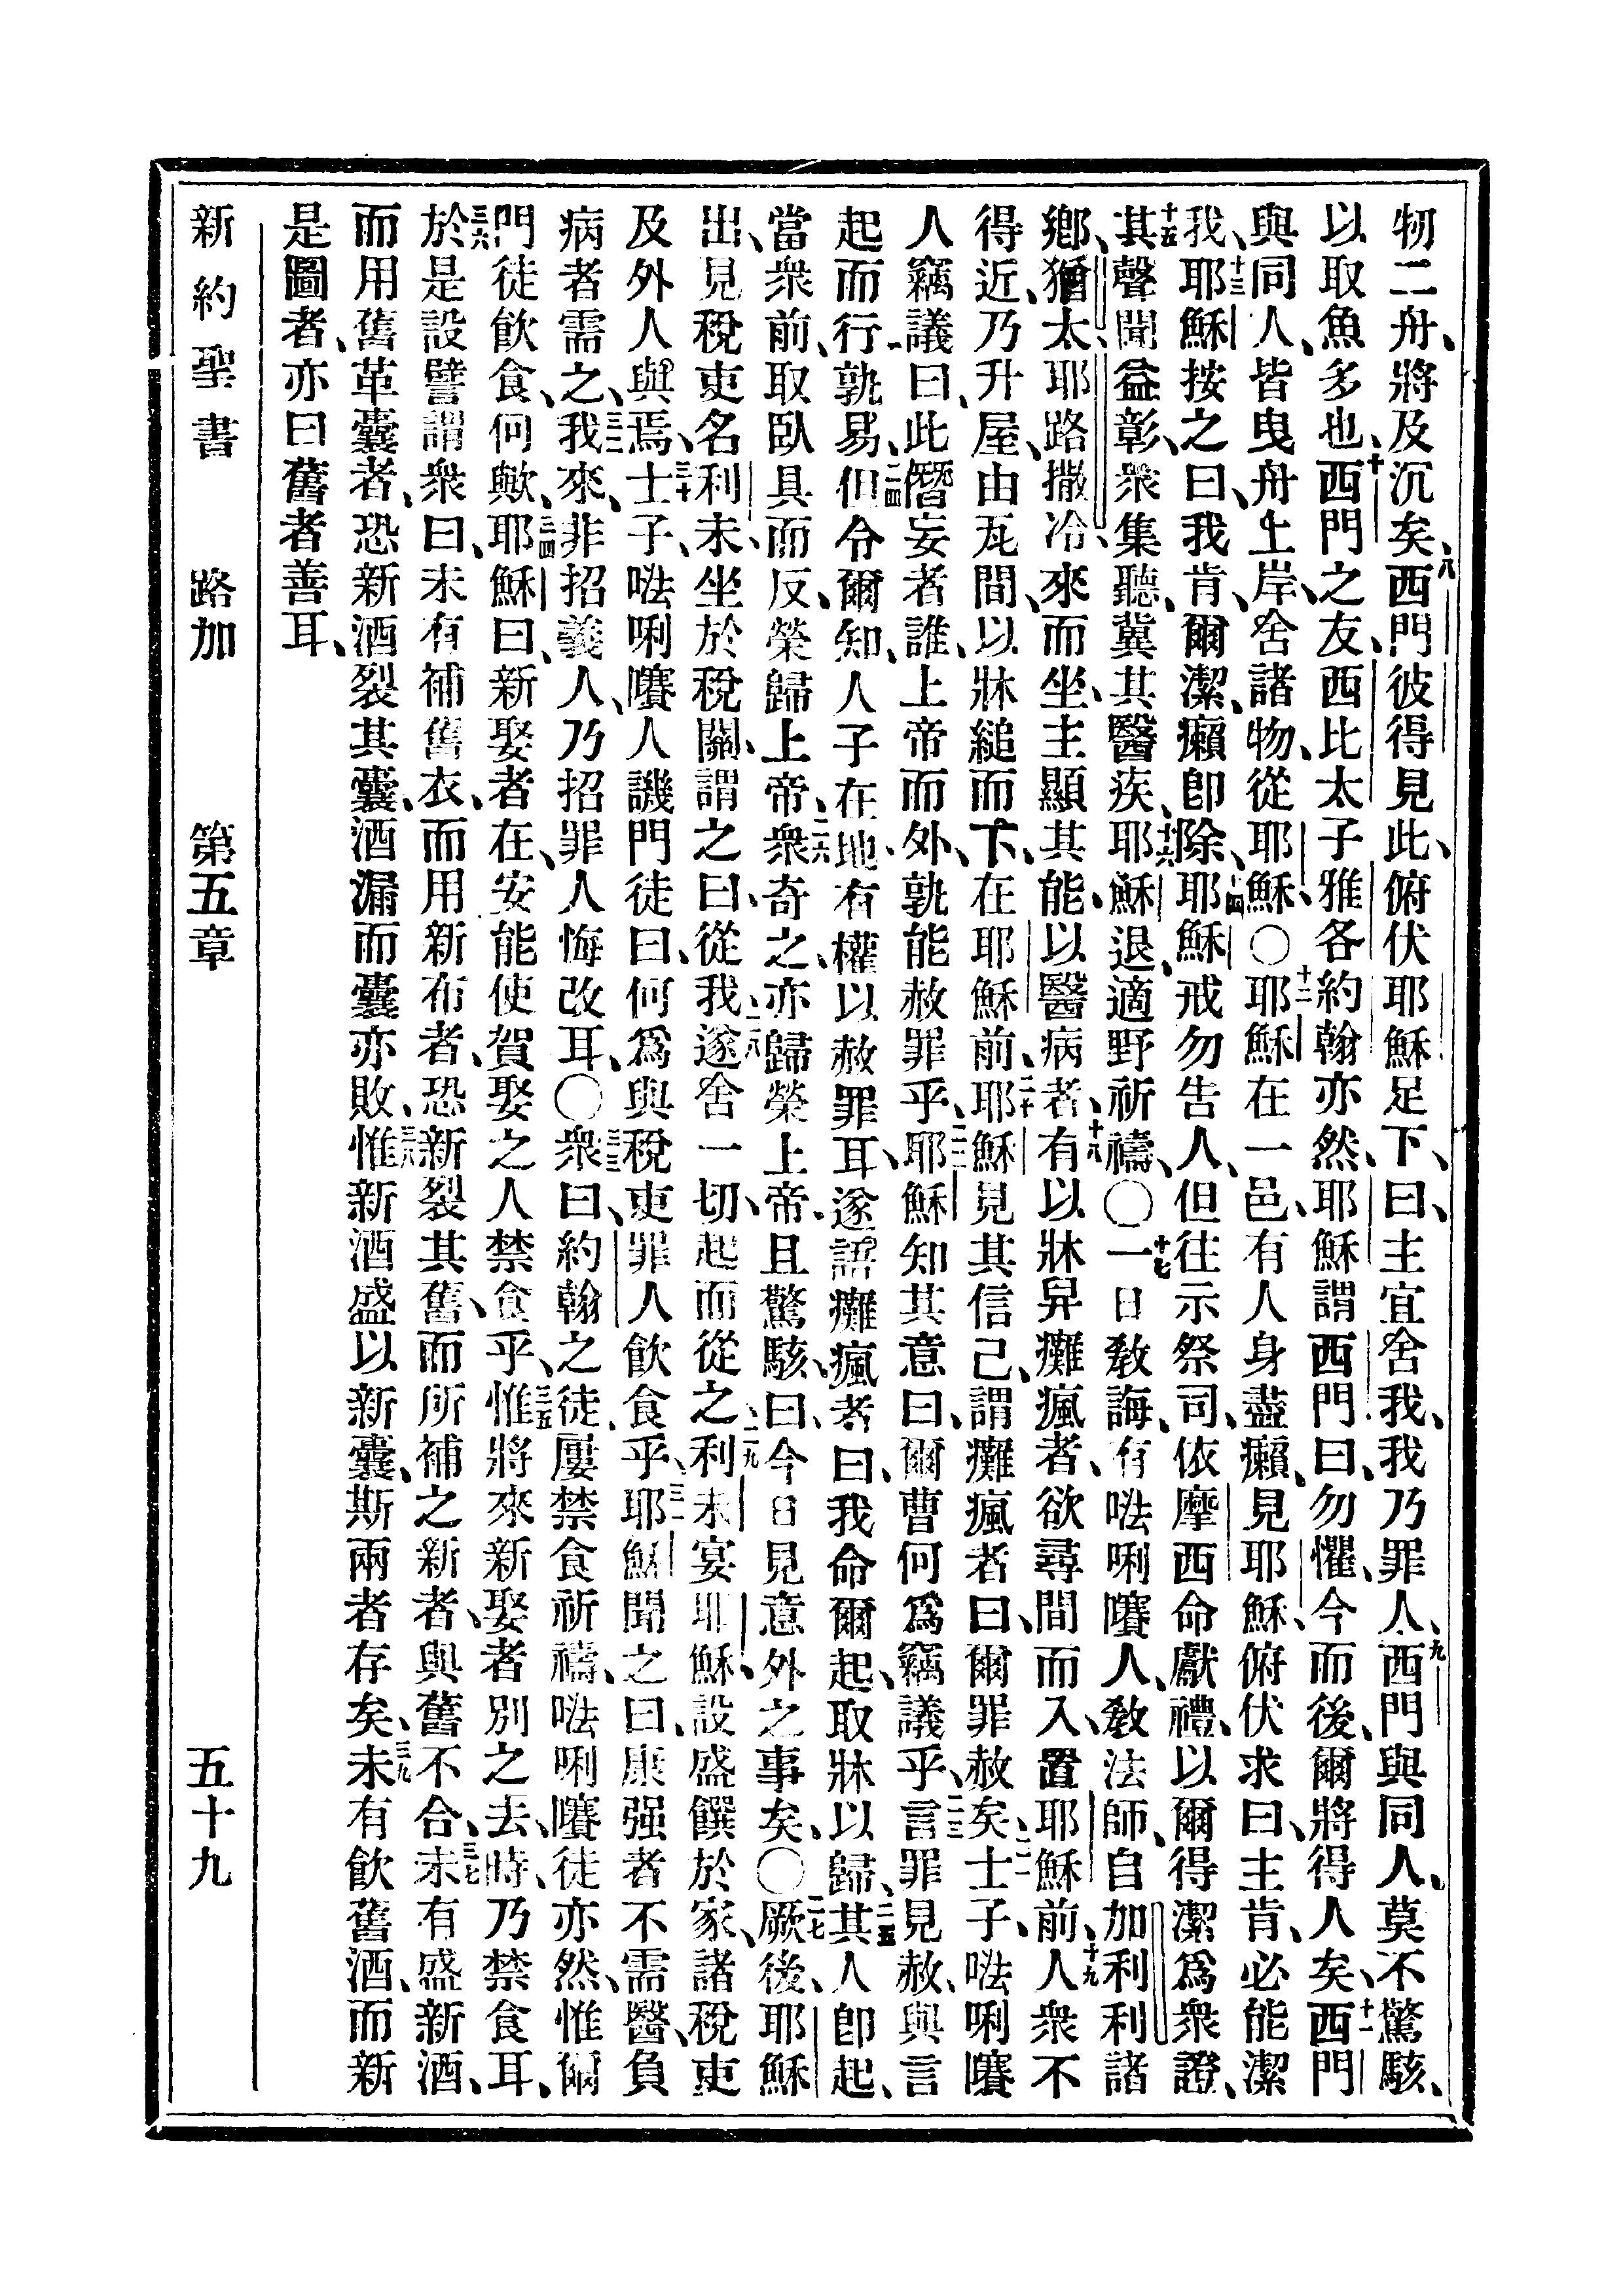 牣二舟、將及沉矣、八西門彼得見此、俯伏耶穌足下、曰、主宜舍我、我乃罪人、九西門與同人、莫不驚駭、
以取魚多也、十西門之友、西比太子雅各約翰亦然、耶穌謂西門曰、勿懼、今而後、爾將得人矣、十一西門
與同人、皆曳舟上岸、舍諸物、從耶穌、〇十二耶穌在一邑、有人身盡癩、見耶穌、俯伏求曰、主肯、必能潔
我、十三耶穌按之曰、我肯、爾潔、癩即除、十四耶穌戒勿告人、但往示祭司、依摩西命獻禮、以爾得潔為衆證、
十五其聲聞益彰、衆集聽、冀其醫疾、十六耶穌退、適野祈禱、〇十七一日教誨、有㗲唎㘔人、教法師、自加利利諸
鄉、猶太、耶路撒冷、來而坐、主顯其能、以醫病者、十八有以牀舁癱瘋者、欲尋間而入、置耶穌前、十九人衆不
得近、乃升屋、由瓦間、以牀縋而下、在耶穌前、二十耶穌見其信己、謂癱瘋者曰、爾罪赦矣、二一士子、㗲唎㘔
人竊議曰、此僭妄者誰、上帝而外、孰能赦罪乎、二二耶穌知其意曰、爾曹何為竊議乎、二三言罪見赦、與言
起而行、孰易、二四但令爾知、人子在地、有權以赦罪耳、遂語癱瘋者曰、我命爾起、取牀以歸、二五其人即起、
當衆前、取臥具而反、榮歸上帝、二六衆奇之、亦歸榮上帝、且驚駭、曰、今日見意外之事矣、〇二七厥後、耶穌
出、見稅吏名利未、坐於稅關、謂之曰、從我、二八遂舍一切、起而從之、二九利未宴耶穌、設盛饌於家、諸稅吏
及外人與焉、三十士子、㗲唎㘔人譏門徒曰、何為與稅吏罪人飲食乎、三一耶穌聞之曰、康强者不需醫、負
病者需之、三二我來、非招義人、乃招罪人悔改耳、〇三三衆曰、約翰之徒、屢禁食祈禱、㗲唎㘔徒亦然、惟爾
門徒飲食、何歟、三四耶穌曰、新娶者在、安能使賀娶之人禁食乎、三五惟將來新娶者別之去、時、乃禁食耳、
三六於是設譬謂衆曰、未有補舊衣、而用新布者、恐新裂其舊、而所補之新者、與舊不合、三七未有盛新酒、
而用舊革囊者、恐新酒裂其囊、酒漏而囊亦敗、三八惟新酒盛以新囊、斯兩者存矣、三九未有飲舊酒、而新
是圖者、亦曰舊者善耳、
新約聖書 路加 第五章 五十九